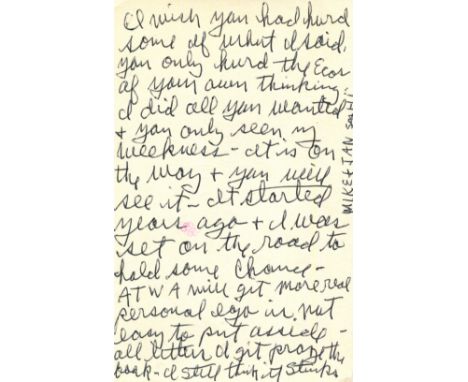 I wish you had hurd
some of what I said,
you only hurd the Ecor
of your own thinking -
I did all you wanted
+ you only seen my
weekness - It is on
the way + you will
see it - It started
years ago + I was
set on the road to
hold some Chance -
ATWA will get more real
personal ego is not
easy to put asside -
all letters I git praze the
book - I still think it stinks
MIKE + JAN SAID